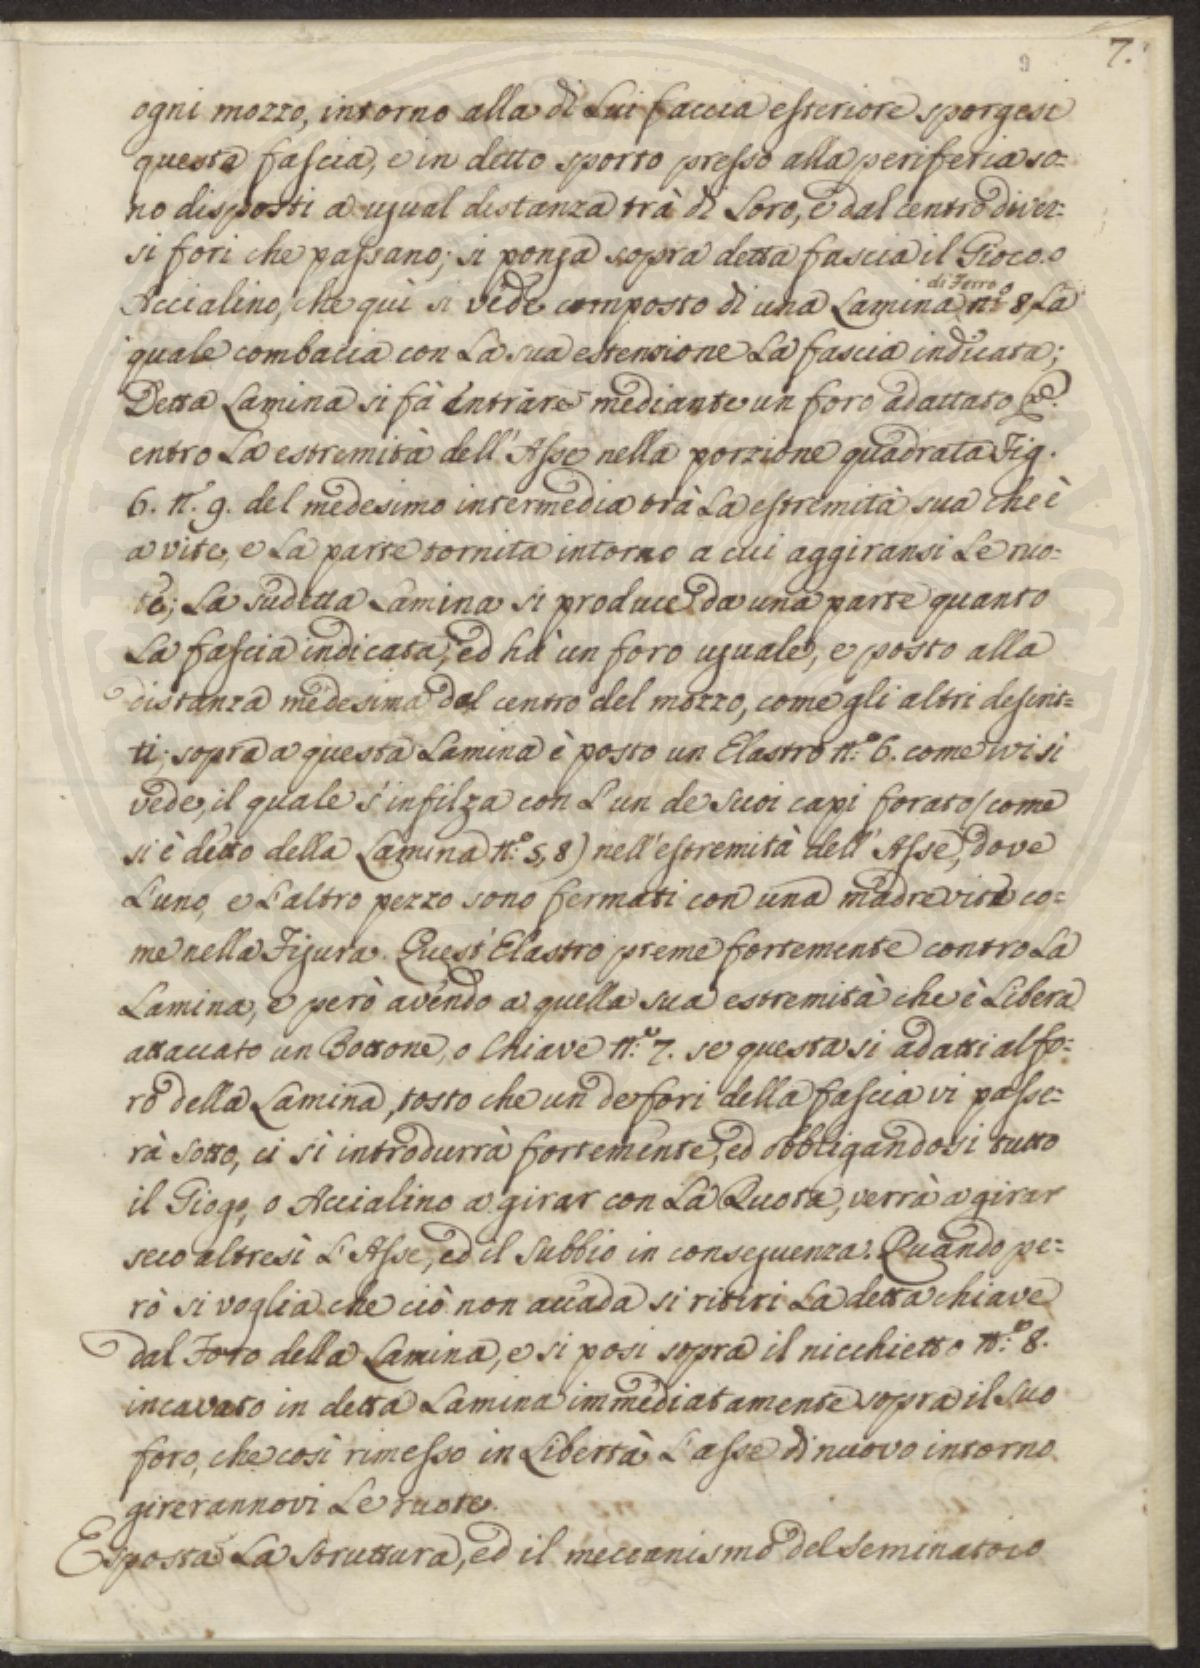 7.
ogni mozzo, intorno alla di Lui faccia esteriore sporgesi
questa fascia, e in detto sporto presso alla periferia so=
no disposti a ugual distanza trà di Loro, e dal centro diver=
si fori che passano; si ponga sopra detta fascia il Gioco o
di Ferro
Accialino, che quì si vede composto di una Lamina n.º 8 La
quale combacia con La sua estensione La fascia indicata;
Detta Lamina si fà entrare mediante un foro adattato
entro La estremità dell' Asse nella porzione quadrata Fig.
6. n. 9. del medesimo intermedia trà La estremità sua che è
a vite, e La parte tornita intorno a cui aggiransi Le ruo=
te; La sudetta Lamina si produce da una parte quanto
La fascia indicata, ed hà un foro uguale, e posto alla
distanza medesima dal centro del mozzo, come gli altri descrit=
ti; sopra a questa Lamina è posto un Elastro n.º 6. come ivi si
vede, il quale s'infilza con L'un de suoi capi forato (come
si è detto della Lamina n.º 5, 8) nell'estremità dell' Asse, dove
L'uno, e L'altro pezzo sono fermati con una madrevite co=
me nella Figura. Quest' Elastro preme fortemente contro La
Lamina, e però avendo a quella sua estremità che è Libera
attaccato un Bottone, o Chiave n.º 7. se questa si adatti al fo=
ro della Lamina, tosto che un de fori della fascia vi passe=
rà sotto, ci si introdurrà fortemente, ed obbligandosi tutto
il Giogo, o Accialino a girar con La Ruota, verrà a girar
seco altresì L'Asse, ed il subbio in conseguenza. Quando pe=
rò si voglia che ciò non accada si ritiri La detta chiave
dal Foro della Lamina, e si posi sopra il nicchietto n.º 8.
incavato in detta Lamina immediatamente sopra il suo
foro, che così rimesso in Libertà L'asse di nuovo intorno
girerannovi Le ruote.
Esposta La struttura, ed il meccanismo del seminatoio